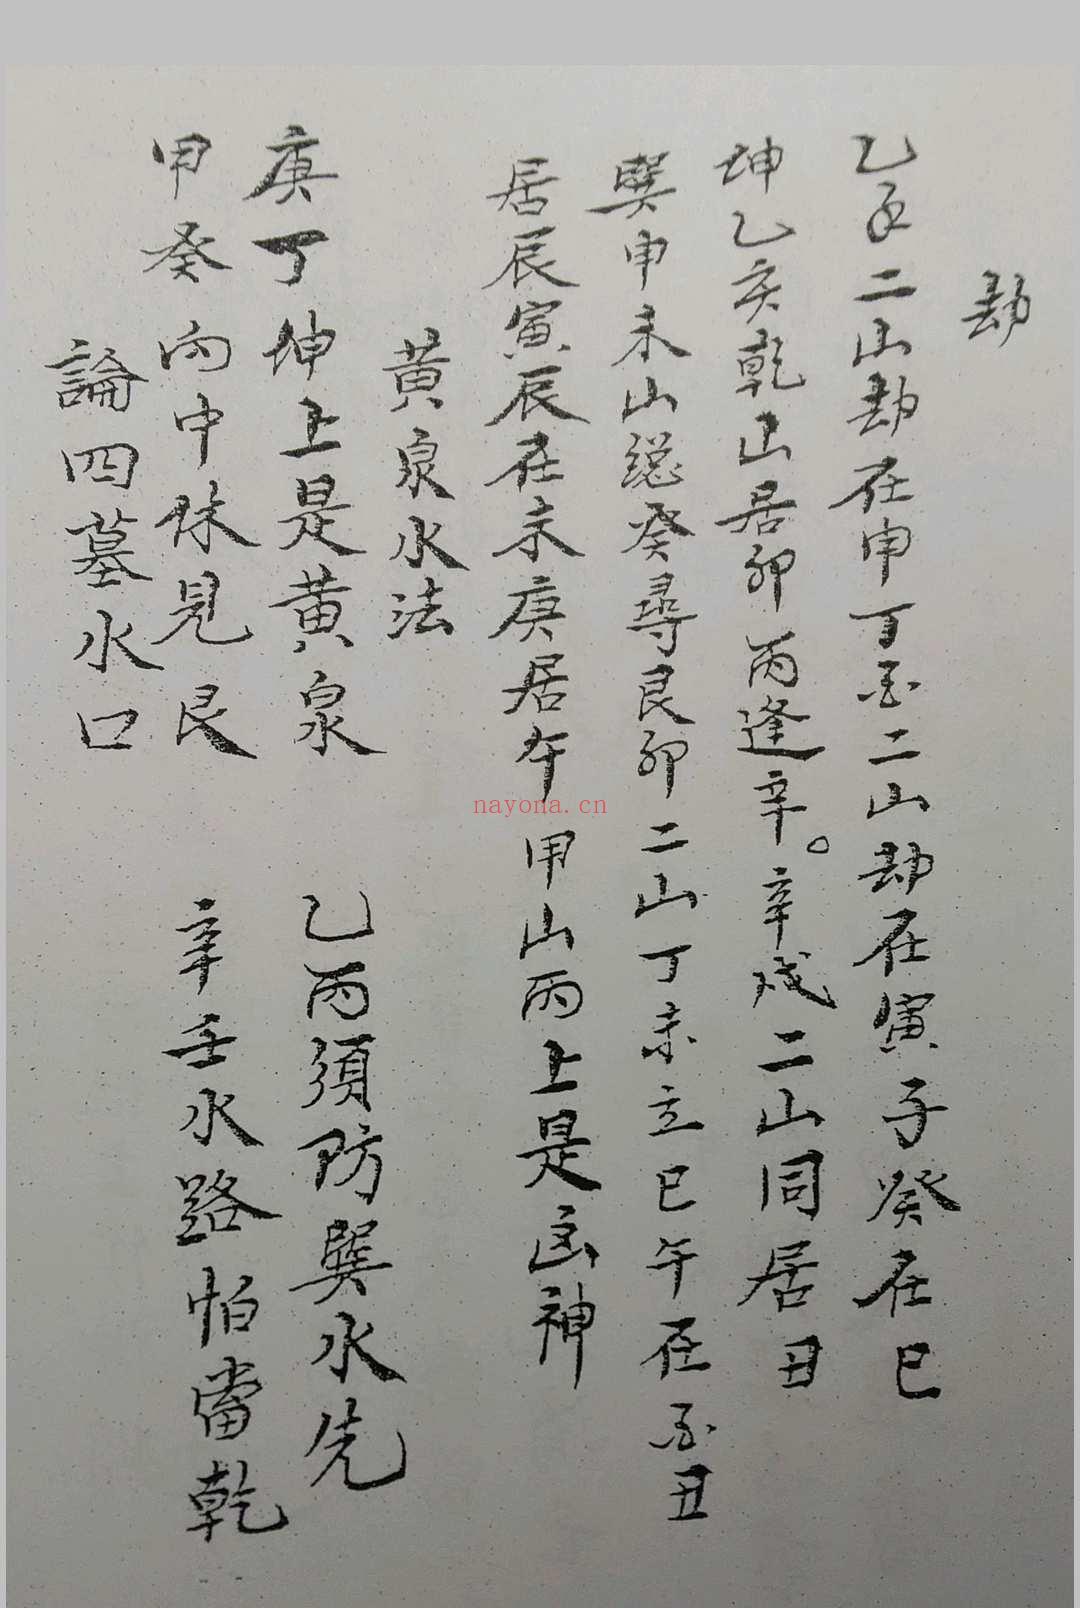 劫
乙 二山劫在申丁 二山劫在寅子癸在巳
坤乙亥乾山居卯丙逢辛。辛戌二山同居丑
巽申未山 癸尋艮卯二山丁未立巳午在 丑
居辰寅辰在未庚居午甲山丙上是 神
黄泉水法
庚丁坤上是黄泉 乙丙須防巽水先
甲癸向中休見艮 辛壬水路怕當乾
論四墓水口
nayona.cn